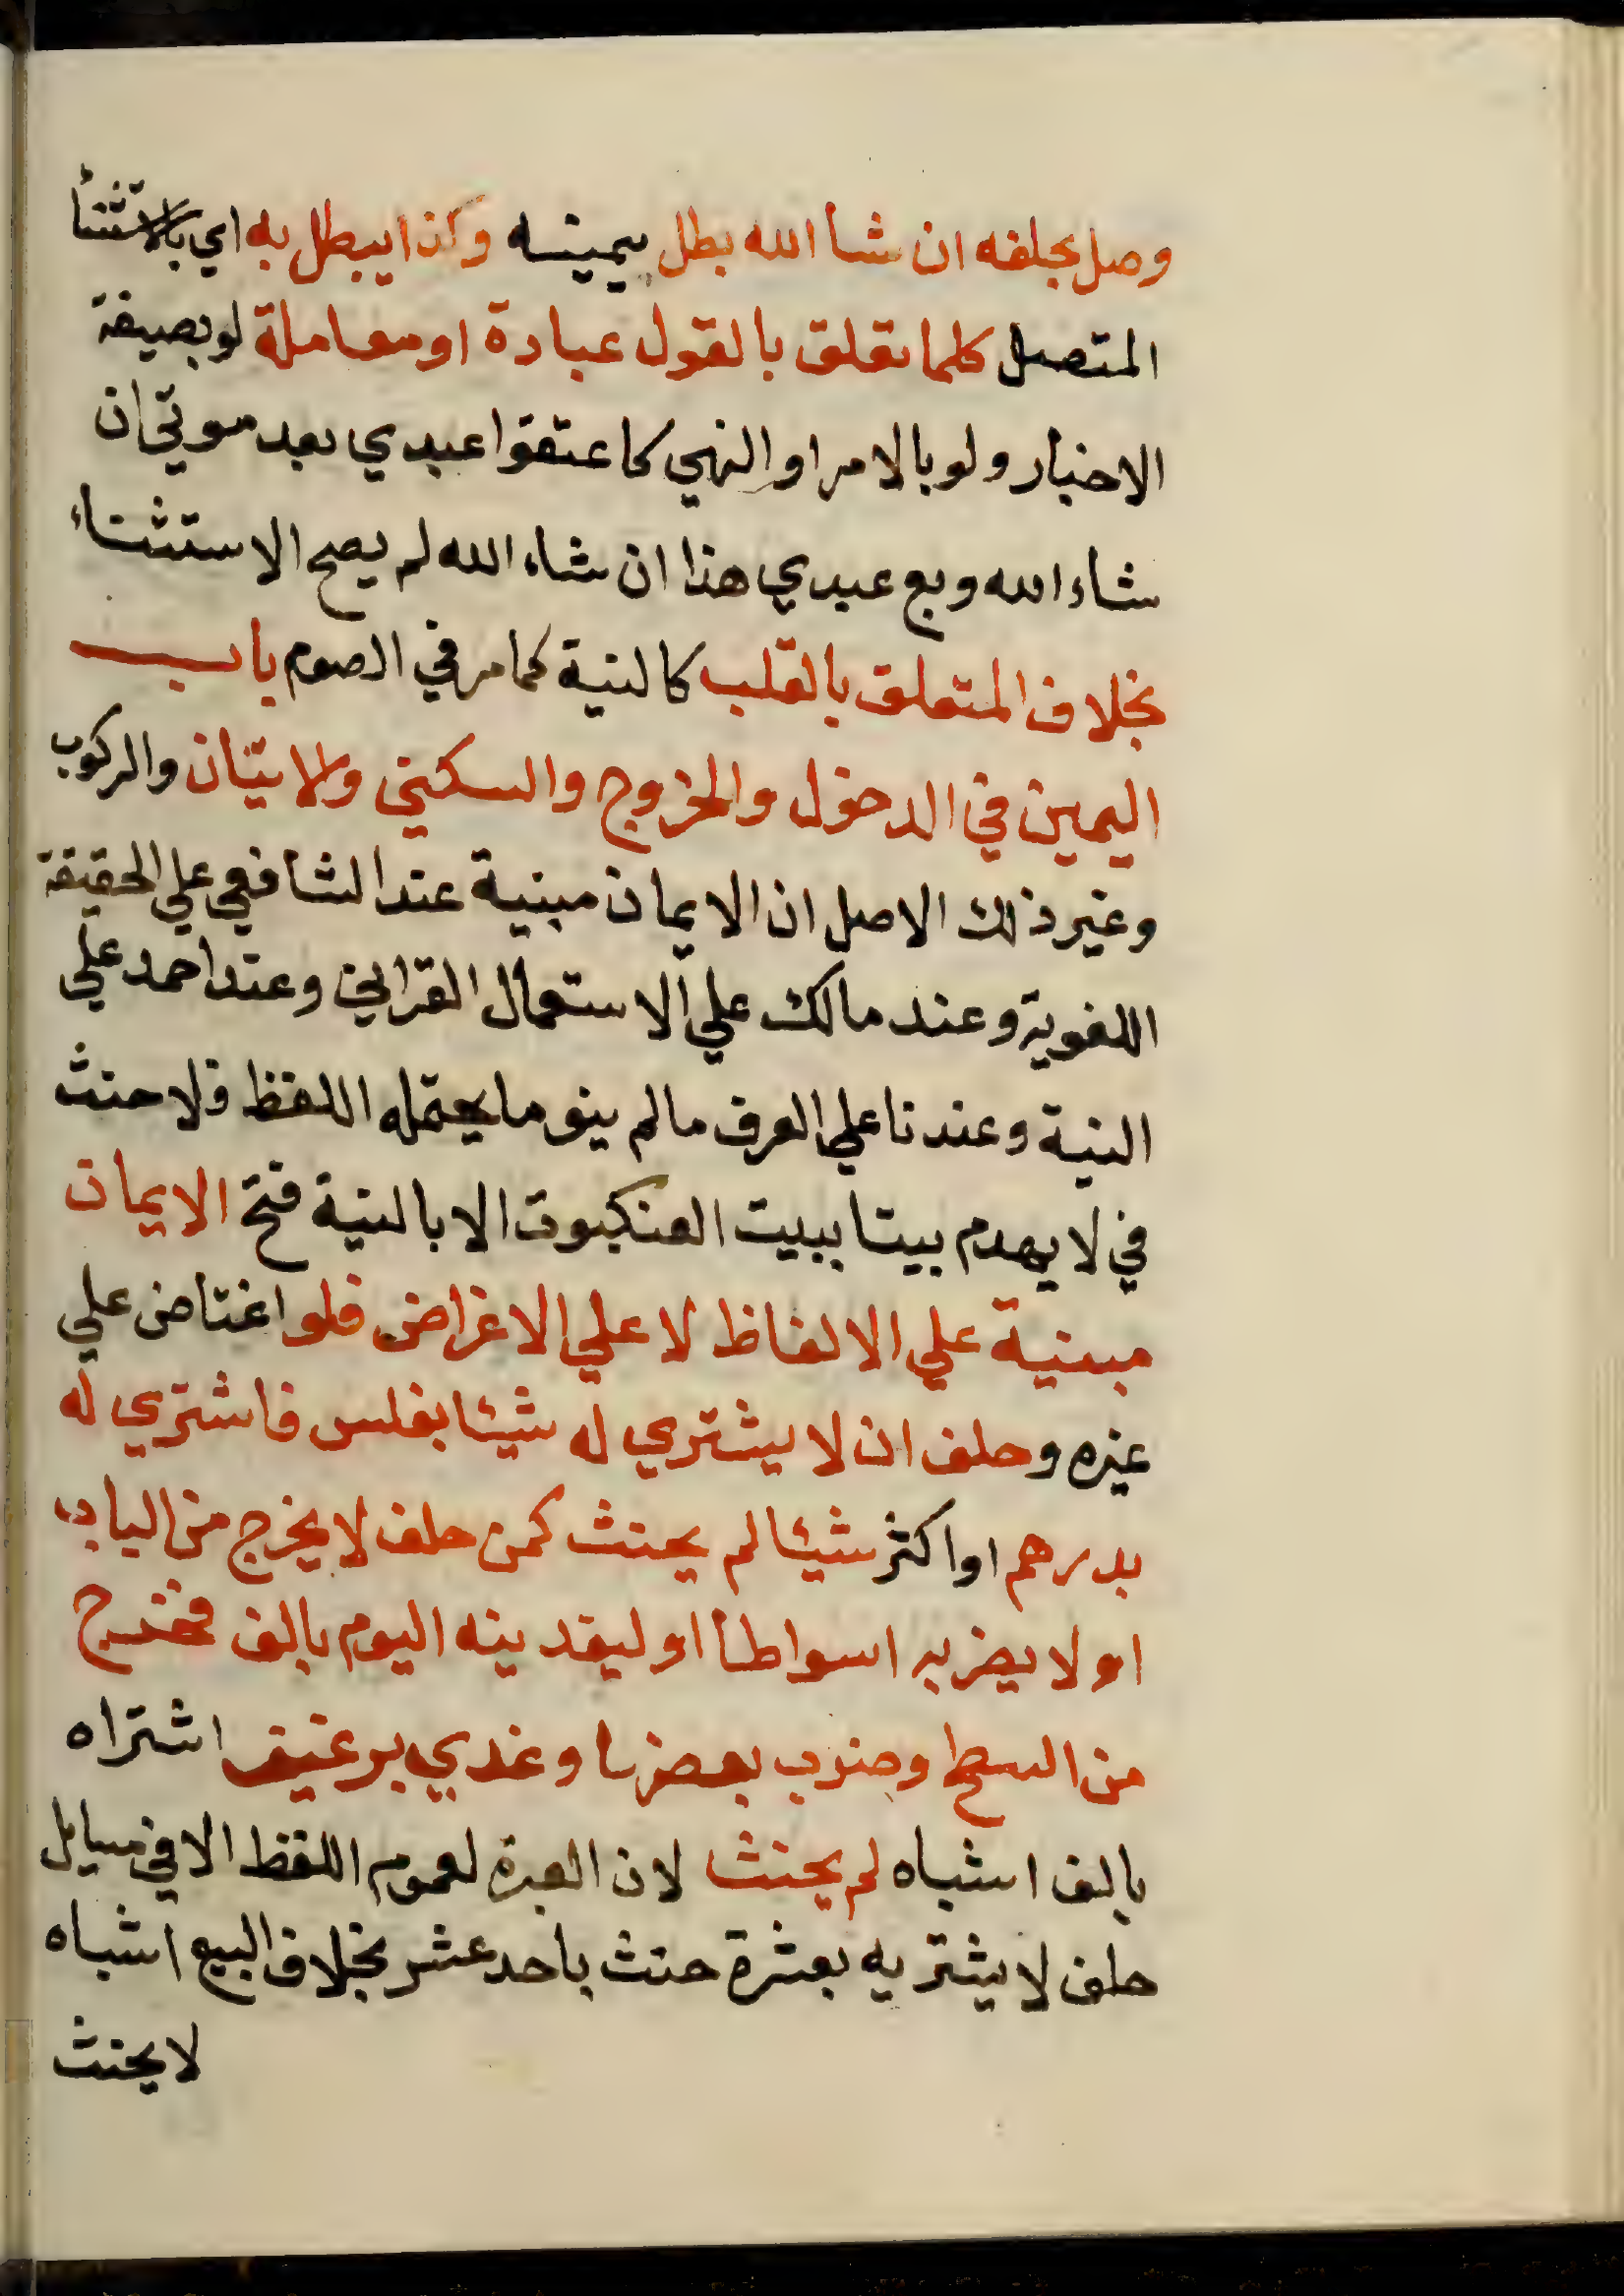 وصل بحلفه ان شا الله بطل يمينه وكذا يبطل به اي بالاستثنأ
المتصل كلما تعلق بالقول عبادة او معاملة لو بصيغة
الاخبار ولو بالامر او النهي كاعتقوا عبدي بعد موتي ان
شاء الله وبع عبدي هذا ان شاء الله لم يصح الاستثناء
بخلاف المتعلق بالقلب كالنية كما مر في الصوم باب
اليمين في الدخول والخروج والسكني والاتيان والركوب
وغير ذلك الاصل ان الايمان مبنية عند الشافعي علي الحقيقة
اللغوية وعند مالك علي الاستعمال القراني وعند احمد علي
النية وعندنا علي العرف مالم ينو ما يحتمله اللفظ فلا حنث
في لا يهدم بيتا ببيت العنكبوت الا بالنية فتح الايمان
مبنية علي الالفاظ لا علي الاغراض فلو اغتاض علي
غيره وحلف ان لا يشتري له شيئا بفلس فاشتري له
بدرهم او اكثر شيئا لم يحنث كمن حلف لا يخرج من الباب
او لا يضربه اسواطا او ليغدينه اليوم بالف فخرج
من السطح وضرب بعضها وغدي برغيف اشتراه
بالف اشباه لم يحنث لان العبرة لعموم اللفظ الا في مسايل
حلف لا يشتريه بعشرة حنث باحد عشر بخلاف البيع اشباه
لا يحنث